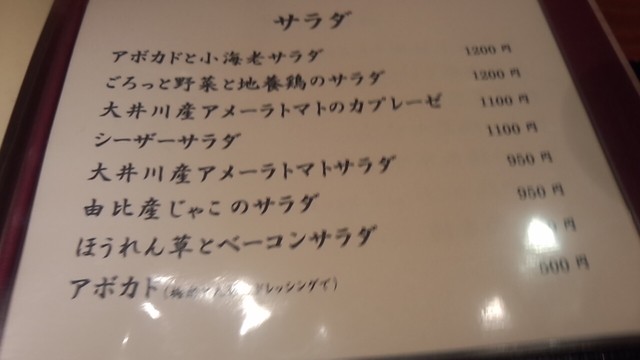 サラダ
アボカドと小海老サラダ 1200 円
ごろっと野菜と地養鶏のサラダ 1200 円
大井川産アメーラトマトのカプレーゼ 1100 円
シーザーサラダ 1100 円
大井川産アメーラトマトサラダ 950 円
由比産じゃこのサラダ 950 円
ほうれん草とベーコンサラダ 円
アボカド ドレッシングで) 500 円